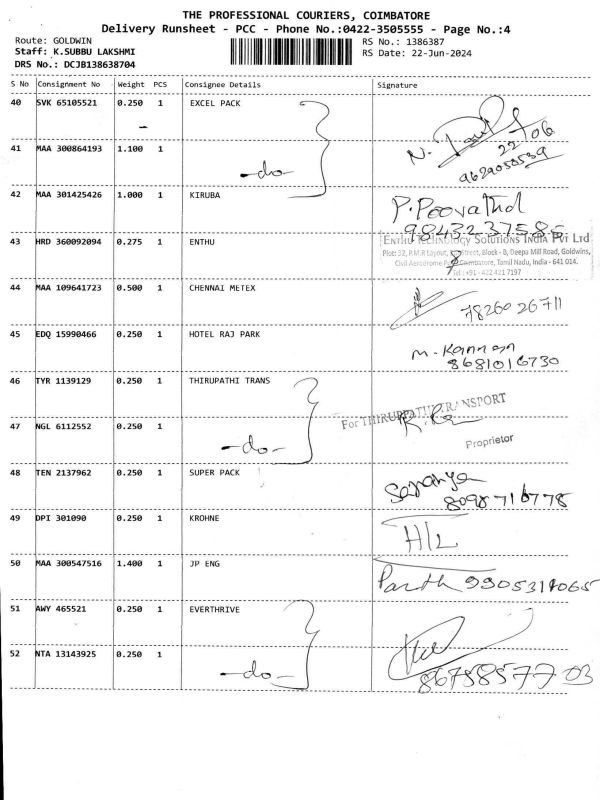 THE PROFESSIONAL COURIERS, COIMBATORE
Delivery Runsheet - PCC - Phone No.:0422-3505555 - Page No.:4
Route: GOLDWIN
Staff: K.SUBBU LAKSHMI
DRS No.: DCJB138638704
RS No.: 1386387
RS Date: 22-Jun-2024
S No Consignment No Weight PCS Consignee Details Signature
40 SVK 65105521 0.250 1 EXCEL PACK
N. 22/06
9629050539
41 MAA 300864193 1.100 1 -do-
42 MAA 301425426 1.000 1 KIRUBA P. Poovathal
9843237586
43 HRD 360092094 0.275 1 ENTHU
ENTHU TECHNOLOGY SOLUTIONS INDIA Pvt Ltd
Plot: 32, P.M.R Layout, Street, Block - B, Deepa Mill Road, Goldwins,
Civil Aerodrome Coimbatore, Tamil Nadu, India - 641 014.
Tel: +91 - 422 421 7197
44 MAA 109641723 0.500 1 CHENNAI METEX 7826026711
45 EDQ 15990466 0.250 1 HOTEL RAJ PARK M. Kannan
8681016730
46 TYR 1139129 0.250 1 THIRUPATHI TRANS
For THIRUPPATHI TRANSPORT
47 NGL 6112552 0.250 1 -do-
Proprietor
48 TEN 2137962 0.250 1 SUPER PACK Saranya
8098716778
49 DPI 301090 0.250 1 KROHNE
50 MAA 300547516 1.400 1 JP ENG Parth 9905314065
51 AWY 465521 0.250 1 EVERTHRIVE
52 NTA 13143925 0.250 1 -do- 8675857703